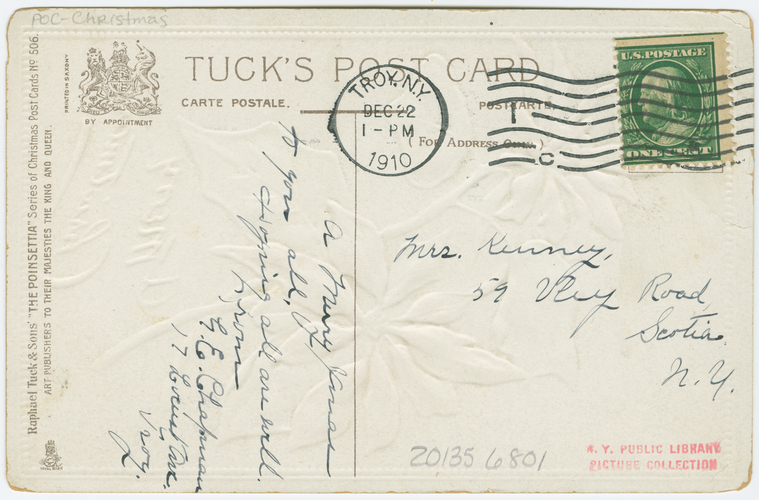 POC-Christmas
PRINTED IN SAXONY
BY APPOINTMENT
TUCK'S POST CARD
CARTE POSTALE.
POSTKARTE.
(FOR ADDRESS ONLY.)
TROY, N.Y.
DEC 22
1-PM
1910
C
U.S. POSTAGE
ONE CENT
Raphael Tuck & Sons' "THE POINSETTIA" Series of Christmas Post Cards No 506.
ART PUBLISHERS TO THEIR MAJESTIES THE KING AND QUEEN.
A Merry Xmas
to you all,
Hoping all are well.
From
E.E. Chapman
17 Locust Ave.
Troy.
Mrs. Kenney,
59 Vley Road,
Scotia
N.Y.
20135 6801
N. Y. PUBLIC LIBRARY
PICTURE COLLECTION